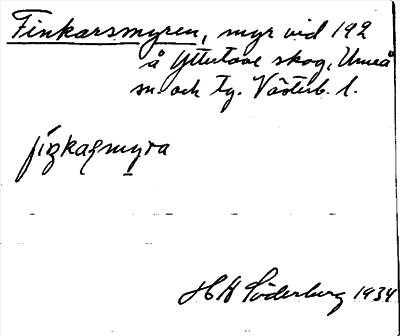 Finkarsmyren, myr vid 192
å Yttertave skog, Umeå
sn. och tg. Västerb. l.
fìŋkaʂmyra
H A Söderberg 1934